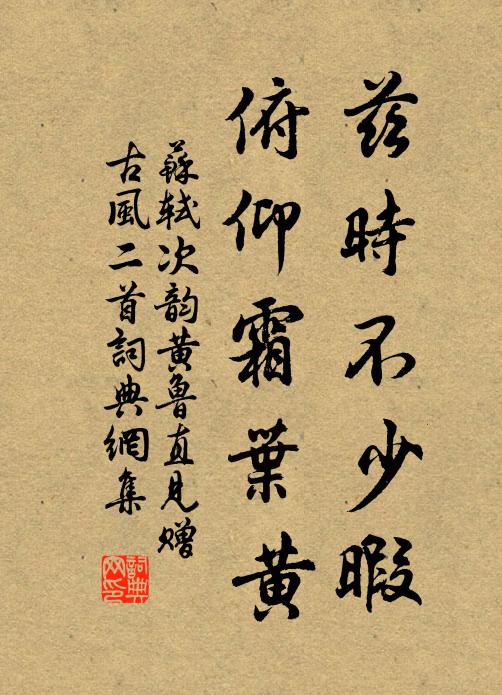 茲時不少暇
俯仰霜葉黃
蘇軾次韵黃魯直見贈
古風二首詞典網集
詞典
网印